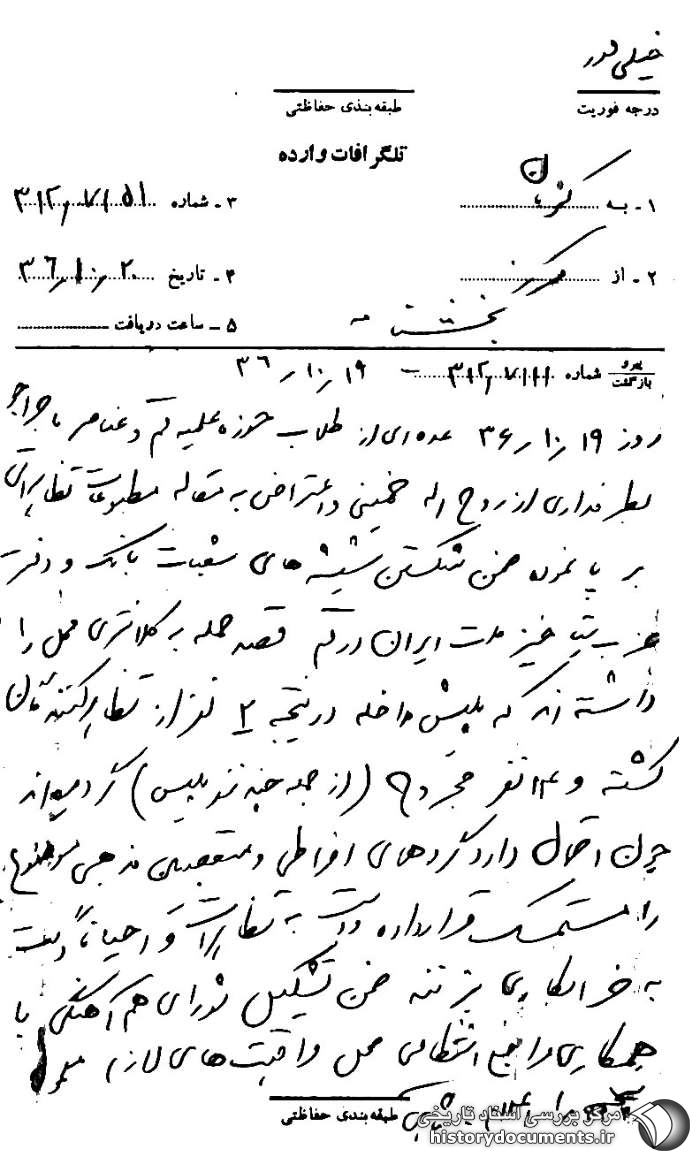 خیلی فوری
درجه فوریت
طبقه‌بندی حفاظتی
تلگرافات وارده
۱ - به
۳ - شماره ۳۱۲/۷۱۵۱
۲ - از مرکز
۴ - تاریخ ۳۶/۱۰/۲۰
۵ - ساعت دریافت
پیرو
بازگشت شماره ۳۱۲/۷۱۱۱ - ۳۶/۱۰/۱۹
روز ۳۶/۱۰/۱۹ عده‌ای از طلاب حوزه علمیه قم و عناصر ماجراجو
بطرفداری از روح اله خمینی و اعتراض به مقاله مطبوعات تظاهراتی
بر پا نموده ضمن شکستن شیشه‌های شعبات بانک و دفتر
حزب رستاخیز ملت ایران در قم قصد حمله به کلانتری محل را
داشته‌اند که پلیس مداخله در نتیجه ۲ نفر از تظاهرکنندگان
کشته و ۱۴ نفر مجروح (از جمله چند نفر پلیس) گردیده‌اند
چون احتمال دارد گروههای افراطی و متعصبین مذهبی موضوع
را مستمسک قرار داده دست به تظاهرات و احیاناً دست
به خرابکاری بزنند ضمن تشکیل شورای هم آهنگی با
همکاری مراجع انتظامی محل مراقبت‌های لازم معمول
طبقه‌بندی حفاظتی
مرکز بررسی اسناد تاریخی
historydocuments.ir